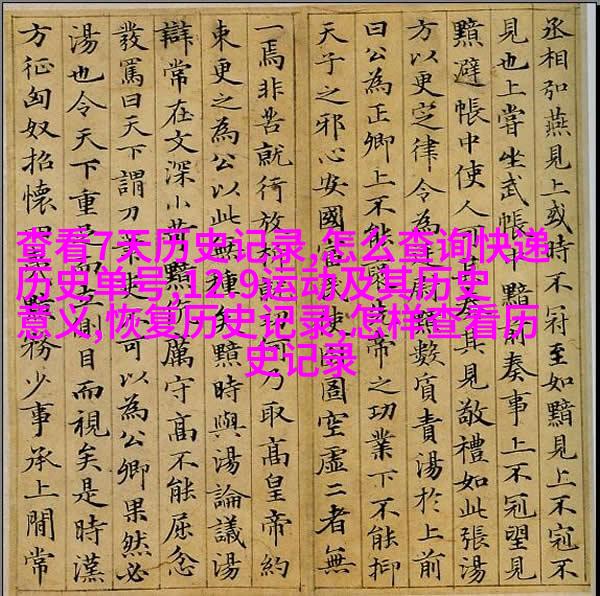 查看7天历史记录,怎么查询快递
历史单号,12.9运动及其历史
意义,恢复历史记录,怎样查看历
史记录
丞相弘燕見上或時不冠至如黯見上不冠不
見也上嘗坐武帳中黯前奏事上不冠望見
黯避帳中使人可其奏其見敬禮如此張湯
方以更定律令為黯數質責湯於上前
曰公為正卿上不能先帝之功業下不能抑
天子之邪心安國富使圄空虛二者無
一焉非苦就行放何乃取高皇帝約
束更之為公以此無種矣黯時與湯論議湯
辯常在文深小苛黯厲守高不能屈忿
發罵曰天下謂刀筆吏不可以為公卿果然必
湯也令天下重足而立側目而視矣是時漢
方征匈奴招懷夷黯務少事承上閒常